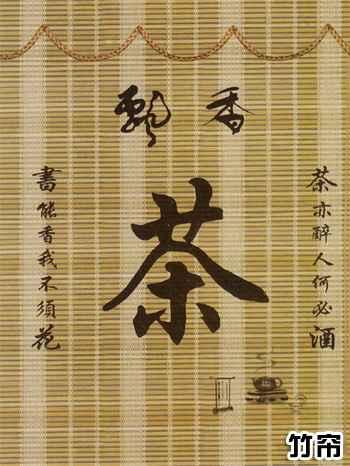 飄香
茶
茶亦醉人何必酒
書能香我不須花
竹帘